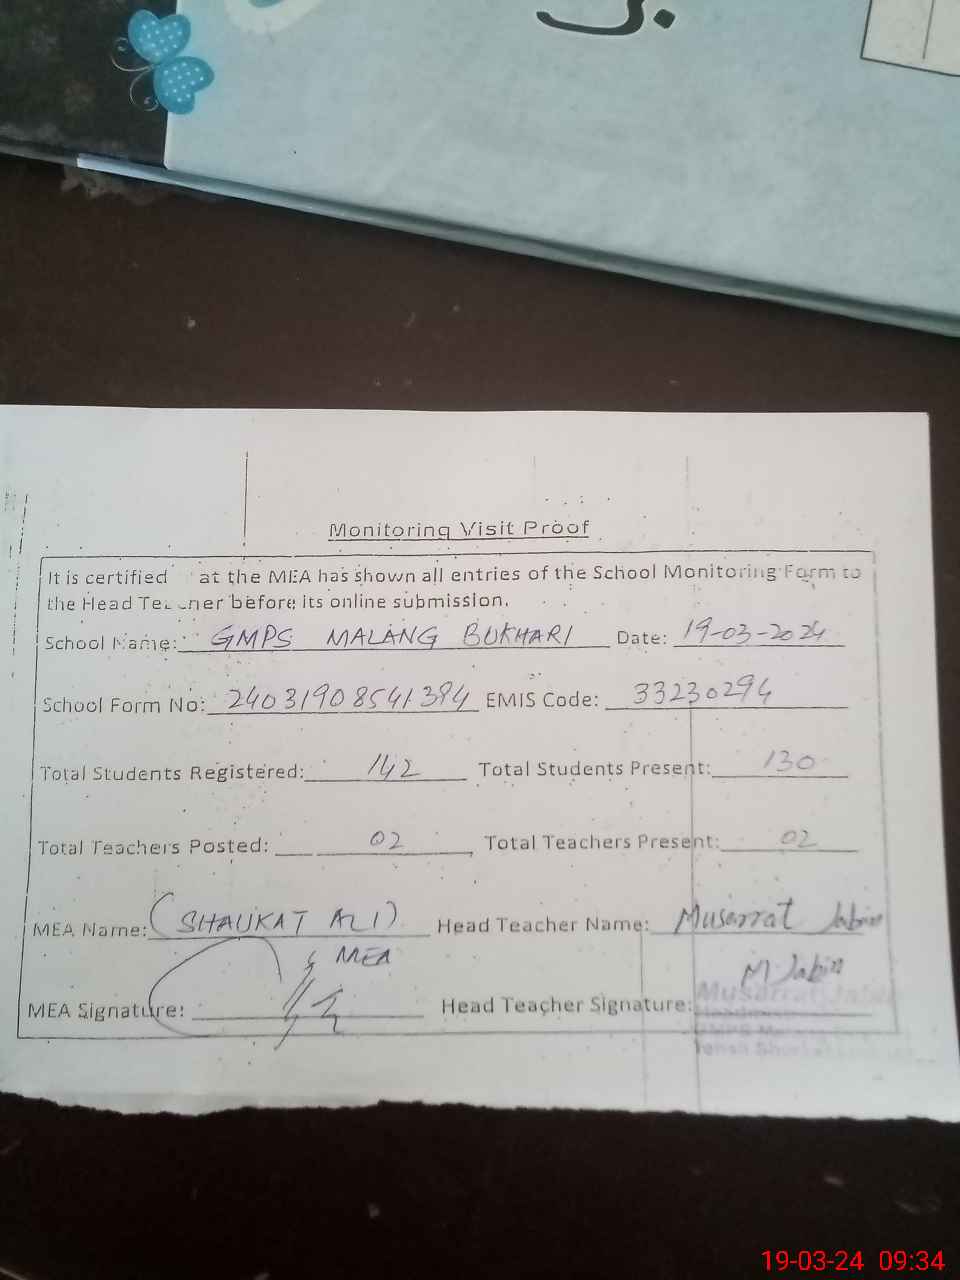 Monitoring Visit Proof
It is certified at the MEA has shown all entries of the School Monitoring Form to
the Head Teacher before its online submission.
School Name: GMPS MALANG BUKHARI Date: 19-03-2024
School Form No: EMIS Code: 33230294
Total Students Registered: 142 Total Students Present: 130
Total Teachers Posted: 02 Total Teachers Present: 02
MEA Name: (SHAUKAT ALI) Head Teacher Name: Musarrat Jabin
MEA
M Jabin
MEA Signature: Head Teacher Signature:
Musarrat Jabin
19-03-24 09:34